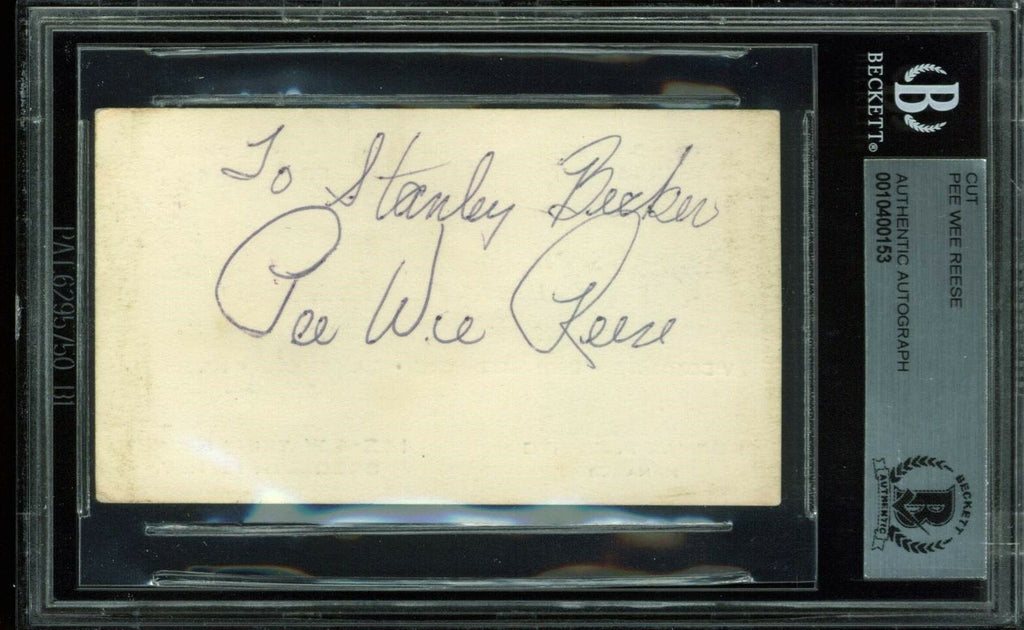 To Stanley Becker
Pee Wee Reese
BECKETT®
B
CUT
PEE WEE REESE
AUTHENTIC AUTOGRAPH
0010400153
BECKETT
B
AUTHENTIC